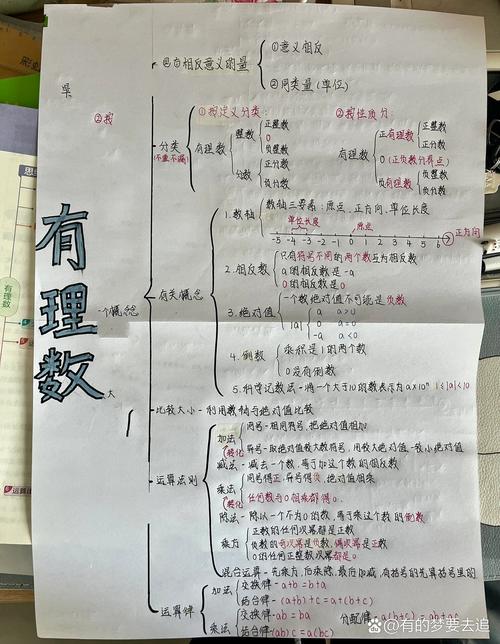 具有相反意义的量
①意义相反
②同类量(单位)
分类
(不重不漏)
①按定义分类:
有理数
整数
正整数
0
负整数
分数
正分数
负分数
②按性质分:
有理数
正有理数
正整数
正分数
0(正负数分界点)
负有理数
负整数
负分数
②按
有理数
一个概念
有关概念
1.数轴
数轴三要素:原点、正方向、单位长度
单位长度
原点
正方向
-5 -4 -3 -2 -1 0 1 2 3 4 5 6
2.相反数
只有符号不同的两个数互为相反数
a的相反数是-a
0的相反数是0
3.绝对值
一个数绝对值不可能是负数
|a|
a a>0
0 a=0
-a a<0
4.倒数
乘积是1的两个数
0没有倒数
5.科学记数法-将一个大于10的数表示为a×10ⁿ 1≤|a|<10
大
比较大小-利用数轴与绝对值比较
运算法则
加法
同号-相同符号,把绝对值相加
异号-取绝对值较大数符号,用较大绝对值-较小绝对值
(转化)
减法-减去一个数,等于加这个数的相反数
乘法
同号得正,异号得负,绝对值相乘
任何数与0相乘都得0.
(转化)
除法-除以一个不为0的数,等于乘这个数的倒数
乘方
正数的任何次幂都是正数
负数的奇次幂是负数,偶次幂是正数
0的任何正整数次幂都是0
混合运算-先乘方,后乘除,最后加减,有括号的先算括号里的
运算律
加法
交换律-a+b=b+a
结合律-(a+b)+c=a+(b+c)
乘法
交换律-ab=ba
结合律-(ab)c=a(bc)
分配律-a(b+c)=ab+ac
有理数
运算
@有的梦要去追